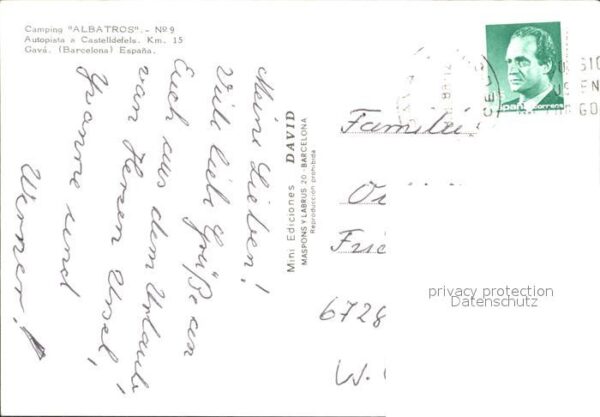 Camping "ALBATROS". - Nº 9
Autopista a Castelldefels. Km. 15
Gavá. (Barcelona) España.
Meine Lieben!
Viele lieb Grüße an
Euch aus dem Urlaub,
von Herzen Ursel,
Yvonne und
Werner!
Mini Ediciones DAVID
MASPONS Y LABRUS 20 - BARCELONA
Reproducción prohibida
España correos
Famili
Fri
6728
W.
privacy protection
Datenschutz